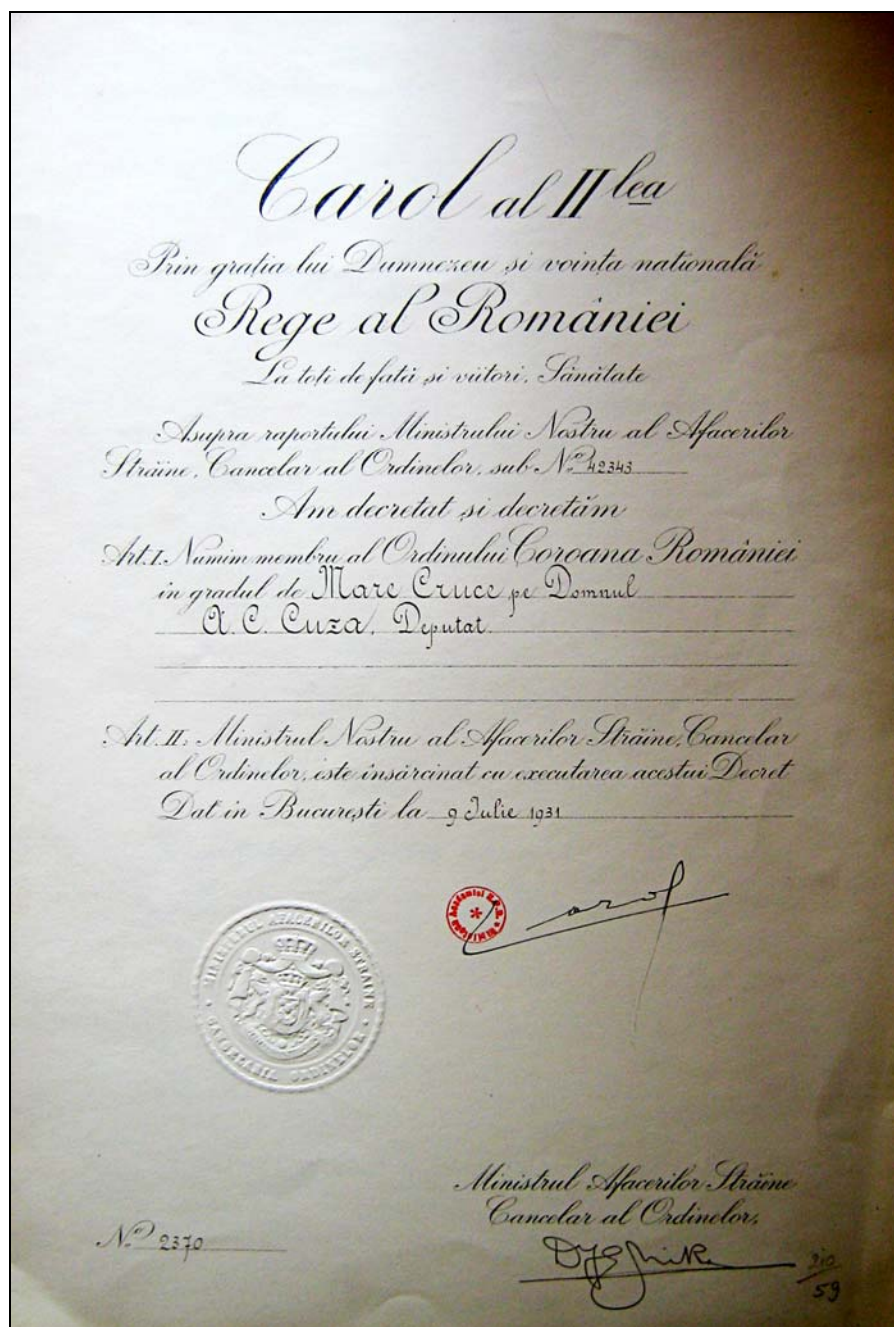 Carol al II lea
Prin grația lui Dumnezeu și voința națională
Rege al României
La toți de față și viitori, Sănătate
Asupra raportului Ministrului Nostru al Afacerilor
Străine, Cancelar al Ordinelor, sub No 42343
Am decretat și decretăm
Art. I. Numim membru al Ordinului Coroana României
in gradul de Mare Cruce pe Domnul
A. C. Cuza, Deputat.
Art. II. Ministrul Nostru al Afacerilor Străine, Cancelar
al Ordinelor, este însărcinat cu executarea acestui Decret
Dat in București la 9 Iulie 1931
Carol
Academiei R.P.R.
MINISTERUL AFACERILOR STRAINE
ORDINELOR
Ministrul Afacerilor Străine
Cancelar al Ordinelor,
No 2370
59